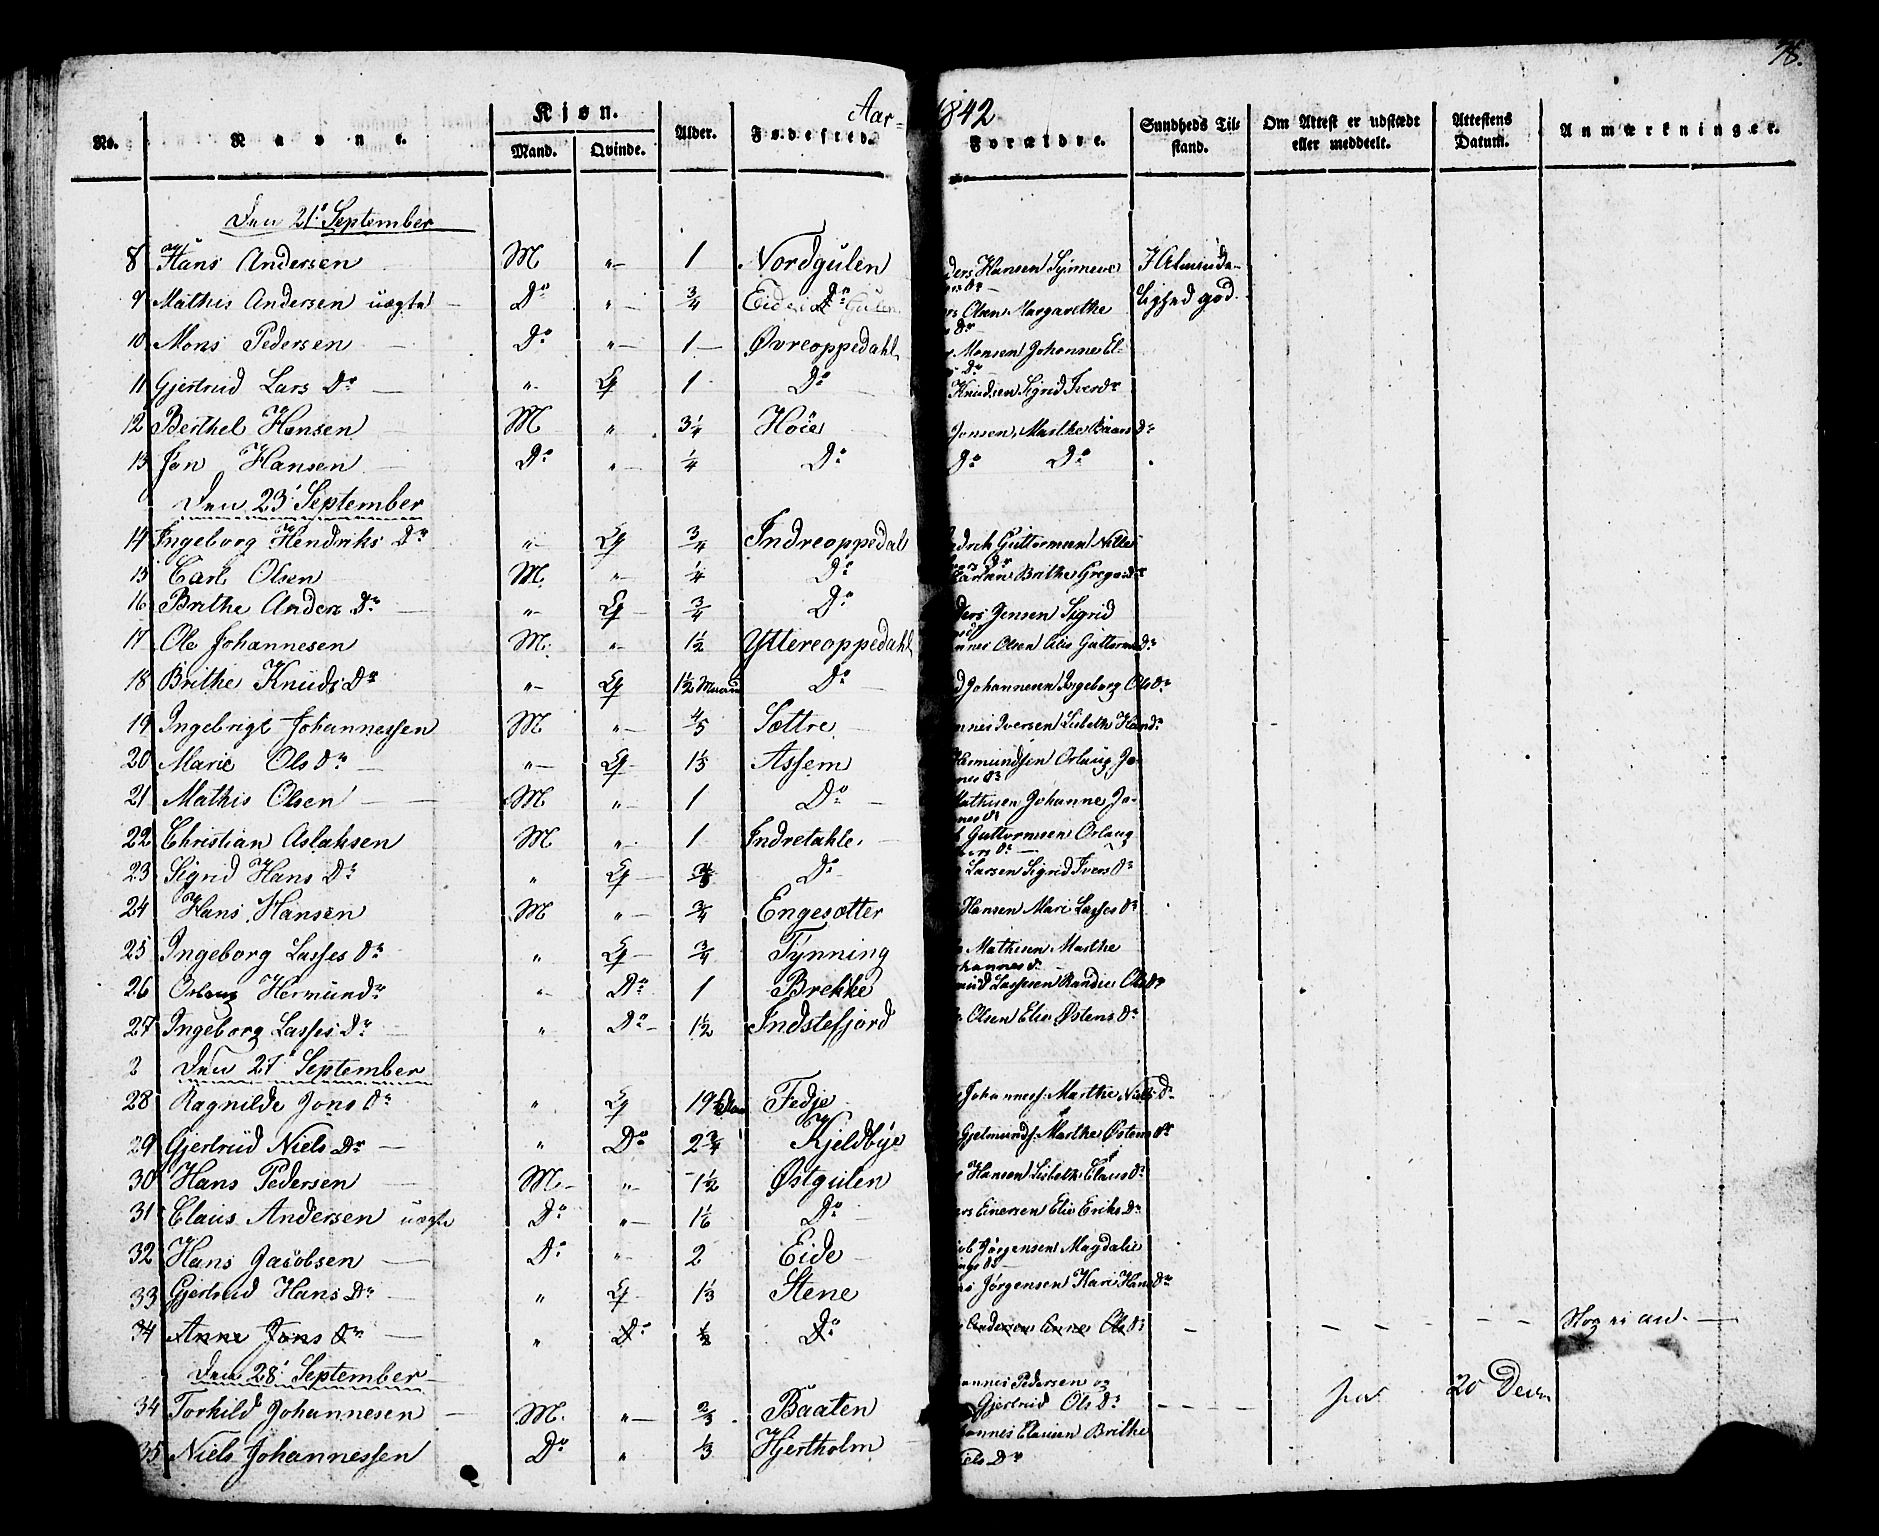 78.
Aar 1842
No. Navne. Kjøn. Mand. Qvinde. Alder. Fødested. Forældre. Sundheds Tilstand. Om Attest er udstædt eller meddeelt. Attestens Datum. Anmærkninger.
Den 21' September
8 Hans Andersen M " 1 Nordgulen ders Hansen Synneve I Alminde-
9 Mathis Andersen uægte Do " 3/4 Eide Do Gulen Olsen Margarethe lighed god
10 Mons Pedersen Do " 1 Øvreoppedahl Monsen Johanne El-
11 Gjertrud Lars Dr " Q 1 Do Knudsen Sigrid Ivers Dr
12 Berthel Hansen M " 3 1/4 Høie Jensen Marthe Baars Dr
13 Jon Hansen Do " 1/4 Do Do Do
Den 23' September
14 Ingeborg Hendriks Dr " Q 3/4 Indreoppedal drik Guttormsen
15 Carl Olsen M " 1/4 Do Larsen Brithe Greges Dr
16 Brithe Anders Dr " Q 3/4 Do ders Jensen Sigrid
17 Ole Johannesen M " 1 1/2 Yttereoppedahl nnes Olsen Guttorms Dr
18 Brithe Knuds Dr " Q 1 1/2 Maaned Do d Johannesen Ingeborg Ols Dr
19 Ingebrigt Johannessen M " 4/5 Sættre nnes Iversen Lisbeth Hans Dr
20 Marie Ols Dr " Q 1 1/3 Assem Hermundsen Orlaug Jo-
nnes Dr
21 Mathis Olsen M " 1 Do Mathisen Johanne Jo-
nnes Dr
22 Christian Aslaksen M " 1 Indretahle Guttormsen Orlaug
23 Sigrid Hans Dr " Q Do Larsen Sigrid Ivers Dr
24 Hans Hansen M " 3/4 Engesætter Hansen Mari Lasses Dr
25 Ingeborg Lasses Dr " Q 3/4 Tynning Mathisen Marthe
ohannes Dr
26 Orlaug Hermund Dr " Do 1 Brekke mund Lassesen Randie Ols Dr
27 Ingeborg Lasses Dr " Do 1 1/2 Indstefjord Olsen Elie Østens Dr
2 Den 27' September
28 Ragnilde Jons Dr " Q 19 Fedje Johanness: Marthe Niels Dr
29 Gjertrud Niels Dr " Do 2 3/4 Kjeldbye Gjelmunds: Marthe Østens Dr
30 Hans Pedersen M " 1 1/2 Østgulen Hansen Lisbeth Claus Dr
31 Claus Andersen uægte Do " 1 1/6 Do ers Einersen Elie Eriks Dr
32 Hans Jacobsen Do " 2 Eide ob Jørgensen Magdalie
33 Gjertrud Hans Dr " Q 1 1/3 Stene Jørgensen Kari Hans Dr
34 Anne Jons Dr " Do 1/2 Do Andersen Anne Ols Dr Slog ei an.
Den 28' September
34 Torkild Johannesen M. " 2/3 Baaten annes Pedersen og
Gjertrud Ols Dr Ja 20 Decbr
35 Niels Johannessen Do " 1/3 Hjertholm hannes Clausen Brithe
iels Dr